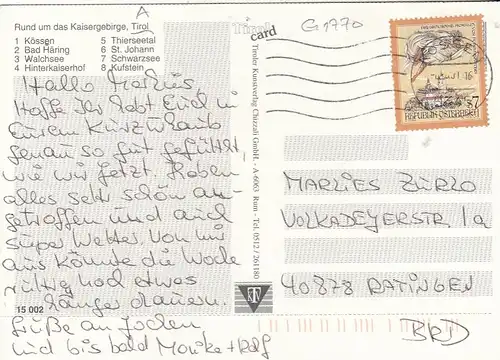 A
G 1770
Rund um das Kaisergebirge, Tirol
1 Kössen 5 Thierseetal
2 Bad Häring 6 St. Johann
3 Walchsee 7 Schwarzsee
4 Hinterkaiserhof 8 Kufstein
Tirol
card
Hallo Marlies,
Hoffe Ihr habt Euch in
Eurem Kurzurlaub
genau so gut gefühlt
wie wir jetzt. Haben
alles sehr schön an-
getroffen und auch
super Wetter. Von mir
aus könnte die Woche
ruhig noch etwas
länger dauern.
Grüße an Jochen
und bis bald Monika + Ralf
15 002
Tiroler Kunstverlag Chizzali GmbH. - A-6063 Rum - Tel. 0512 / 261180
KTV
S 7
REPUBLIK ÖSTERREICH
MARLIES ZURLO
VOLKADEYERSTR 1a
40878 RATINGEN
BRD